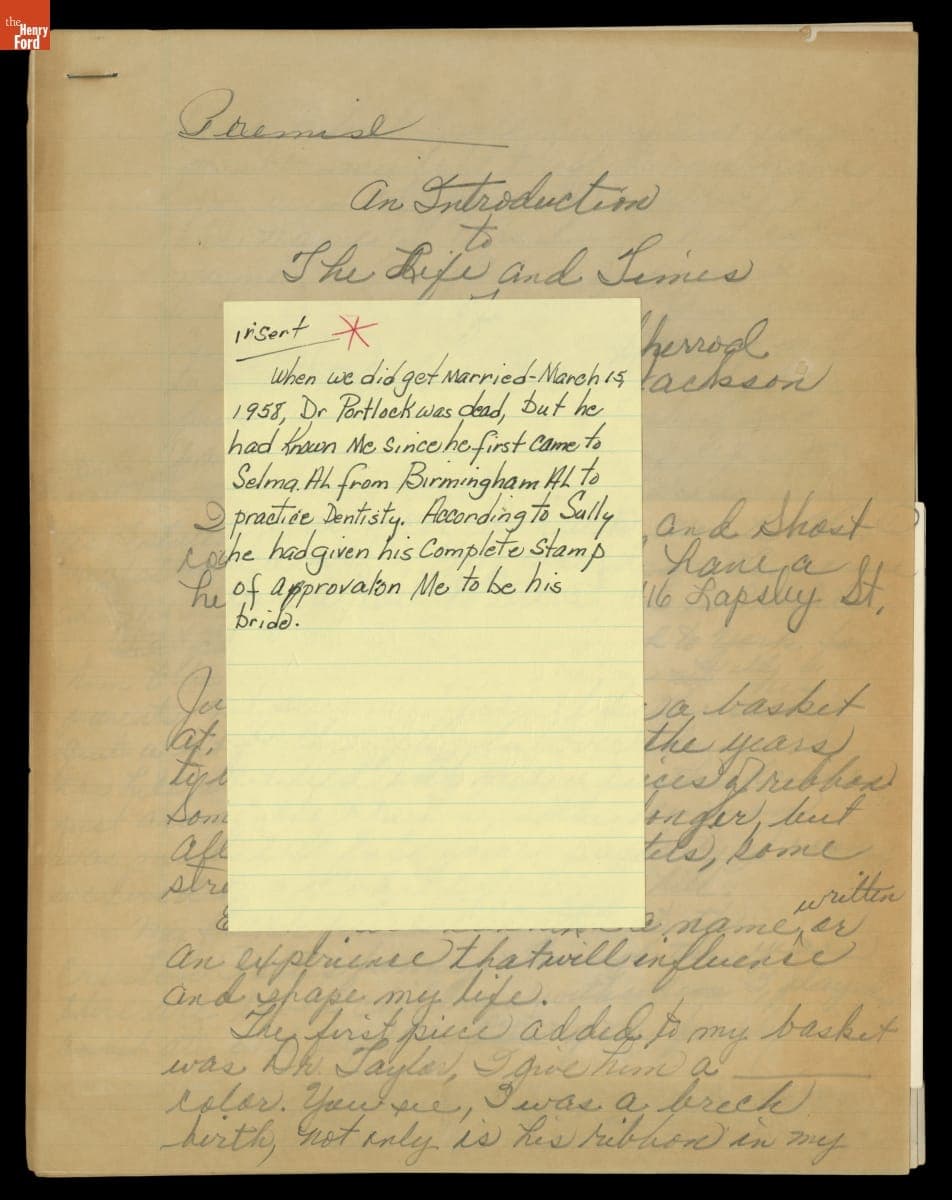 the
Henry
Ford
Premise
An Introduction
to
The Life and Times
herrod
Jackson
insert *
When we did get Married-March 15,
1958, Dr Portlock was dead, but he
had known Me since he first came to
Selma. AL from Birmingham AL to
practice Dentisty. According to Sully
he had given his Complete Stamp
of approval on Me to be his
bride.
, and Short
have a
he 16 Lapsley St,
Ju a basket
at, the years
ty ices of ribbon
Som onger, but
aft some
stre
written
a name, or
an experience that will influence
and shape my life.
The first piece added to my basket
was Dr. Taylor, I give him a ______
color. You see, I was a brech
birth, not only is his ribbon in my